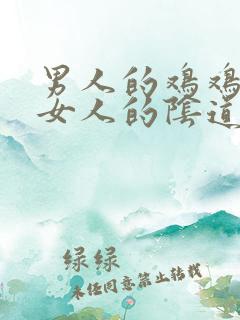 男人的鸡鸡
女人的陰道
绿绿
未经同意禁止转载